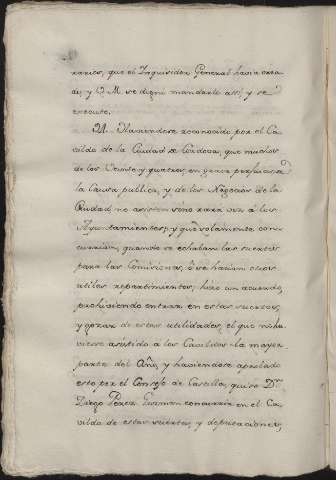 rarios, que el Inquisidor General havia crea
do, y V. M. se dignó mandarlo assi, y se
executó.
21. Haviendose reconocido por el Ca
vildo de la Ciudad de Cordova, que muchos
de los Veinte y quatros, en grave perjuicio de
la Causa publica, y de los Negocios de la
Ciudad no asisten sino rara vez á los
Ayuntamientos; y que solamente con
currian, quando se echaban las suertes
para las Comisiones, ó se hacian otros
utiles repartimientos, hizo un acuerdo,
prohiviendo entrar en estas suertes,
y gozar de estas utilidades, el que no hu
viese asistido á los Cavildos la mayor
parte del Año, y haviendose aprobado
esto por el Consejo de Castilla, quiso Dn.
Diego Perez Guzman concurrir en el Ca
vildo de estas suertes, y diputaciones,